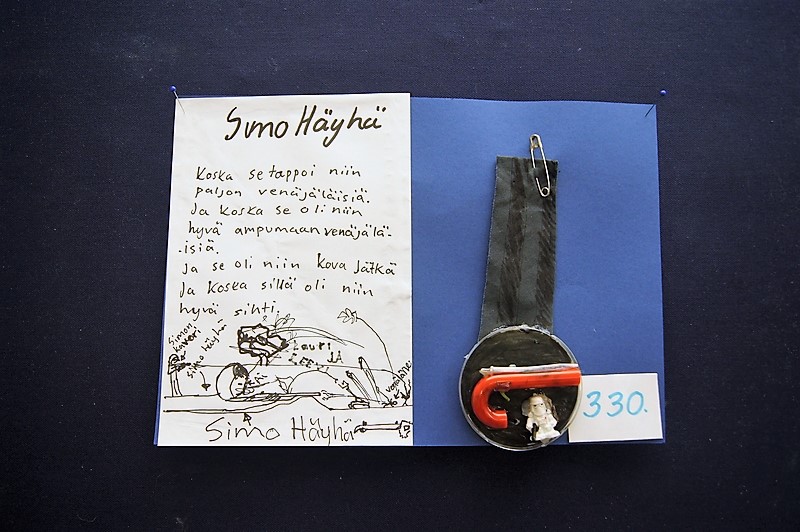 Simo Häyhä
Koska se tappoi niin
paljon venäjäläisiä.
Ja koska se oli niin
hyvä ampumaan venäjälä-
-isiä.
Ja se oli niin kova Jätkä
Ja Koska sillä oli niin
hyvä sihti.
Simon
kaveri
Simo häyhä
Lauri
Simo Häyhä
330.